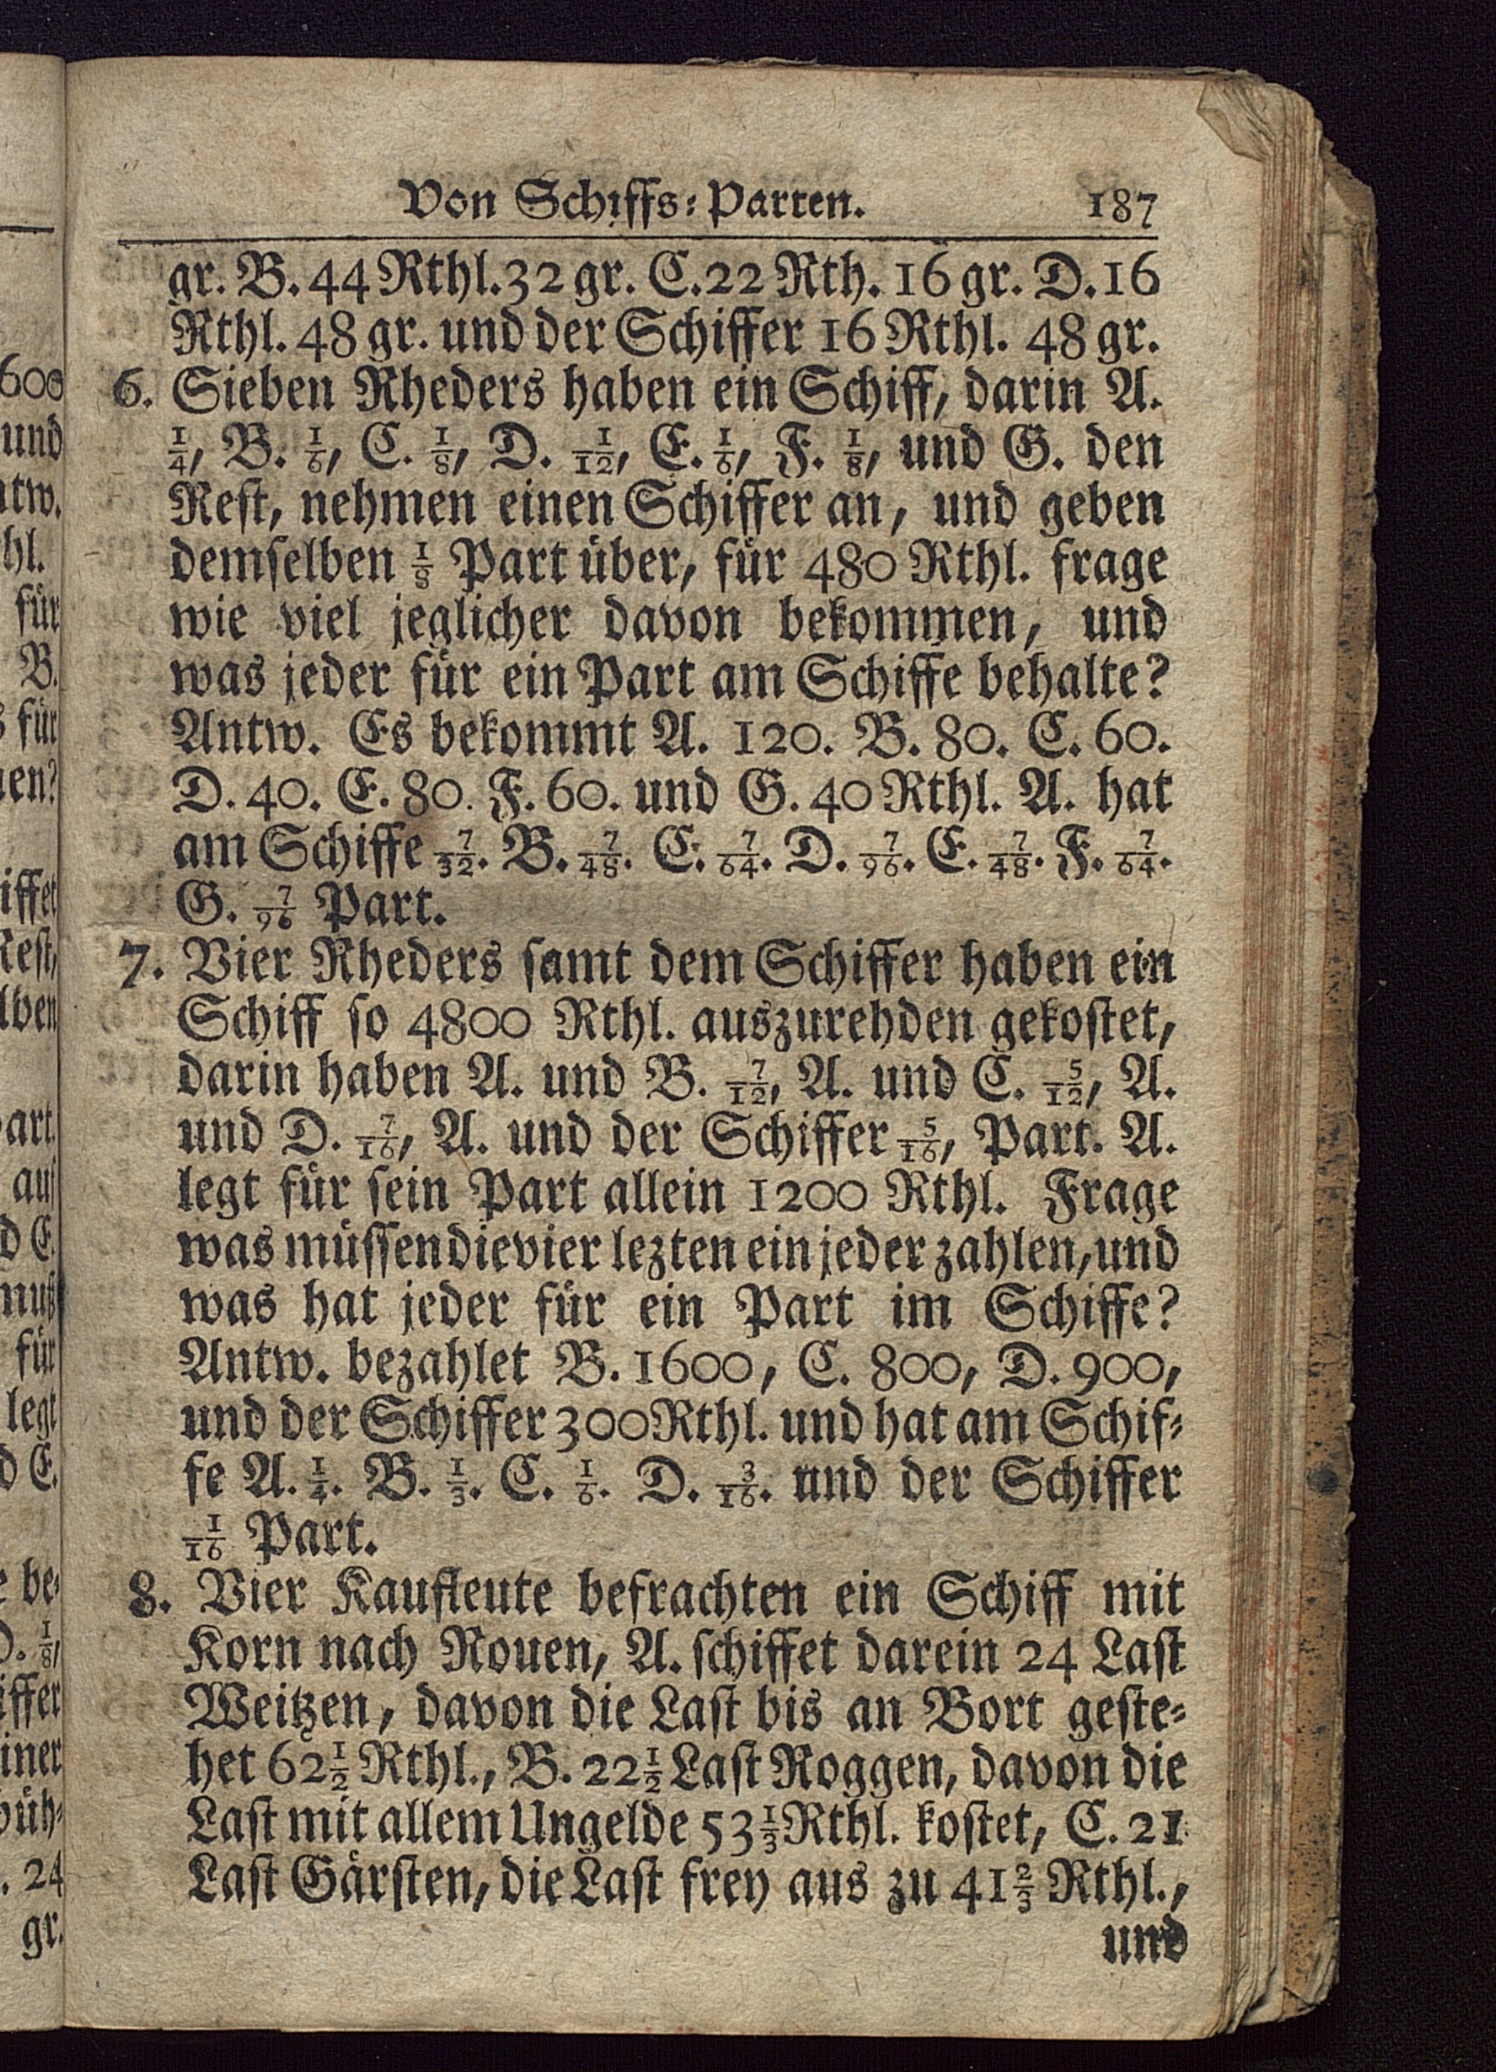 Von Schiffs-Parten. 187
gr. B. 44 Rthl. 32 gr. C. 22 Rth. 16 gr. D. 16
Rthl. 48 gr. und der Schiffer 16 Rthl. 48 gr.
6. Sieben Rheders haben ein Schiff, darin A.
1/4, B. 1/6, C. 1/8, D. 1/12, E. 1/6, F. 1/8, und G. den
Rest, nehmen einen Schiffer an, und geben
demselben 1/8 Part über, für 480 Rthl. frage
wie viel jeglicher davon bekommen, und
was jeder für ein Part am Schiffe behalte?
Antw. Es bekommt A. 120. B. 80. C. 60.
D. 40. E. 80. F. 60. und G. 40 Rthl. A. hat
am Schiffe 7/32. B. 7/48. C. 7/64. D. 7/96. E. 7/48. F. 7/64.
G. 7/96 Part.
7. Vier Rheders samt dem Schiffer haben ein
Schiff so 4800 Rthl. auszurehden gekostet,
darin haben A. und B. 7/12, A. und C. 5/12, A.
und D. 7/16, A. und der Schiffer 5/16, Part. A.
legt für sein Part allein 1200 Rthl. Frage
was müssen die vier lezten ein jeder zahlen, und
was hat jeder für ein Part im Schiffe?
Antw. bezahlet B. 1600, C. 800, D. 900,
und der Schiffer 300 Rthl. und hat am Schif-
fe A. 1/4. B. 1/3. C. 1/6. D. 3/16. und der Schiffer
1/16 Part.
8. Vier Kaufleute befrachten ein Schiff mit
Korn nach Rouen, A. schiffet darein 24 Last
Weitzen, davon die Last bis an Bort geste-
het 62 1/2 Rthl., B. 22 1/2 Last Roggen, davon die
Last mit allem Ungelde 53 1/3 Rthl. kostet, C. 21
Last Gärsten, die Last frey aus zu 41 2/3 Rthl.,
und